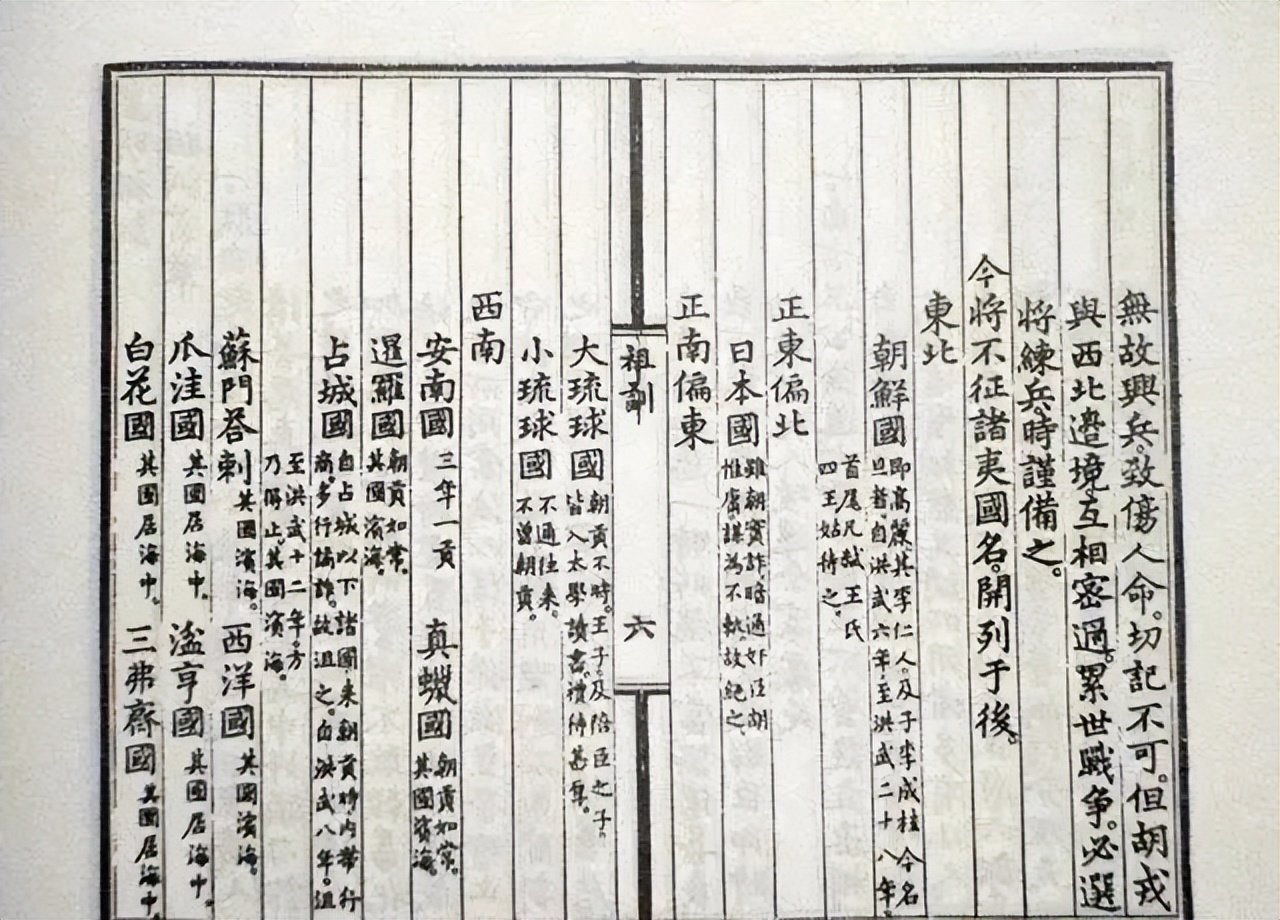 無故興兵。致傷人命。切記不可。但胡戎
與西北邊境。互相密邇。累世戰爭。必選
將練兵。時謹備之。
今將不征諸夷國名。開列于後。
東北
朝鮮國
即高麗其李仁人。及子李成桂今名
旦者。自洪武六年。至洪武二十八年。
首尾凡弒王氏
四王姑待之。
正東偏北
日本國
雖朝實詐。暗通奸臣胡
惟庸謀為不軌。故絕之。
正南偏東
大琉球國
朝貢不時。王子。及陪臣之子。
皆入太學讀書。禮待甚厚。
小琉球國
不通往來。
不曾朝貢。
祖訓
六
西南
安南國
三年一貢
真蠟國
朝貢如常。
其國濱海。
暹羅國
朝貢如常。
其國濱海。
占城國
自占城以下諸國。來朝貢時。內帶行
商。多行譎詐。故沮之。自洪武八年。沮
至洪武十二年。方
乃得止。其國濱海。
蘇門荅剌
其國濱海。
西洋國
其國濱海。
爪洼國
其國居海中。
湓亨國
其國居海中。
白花國
其國居海中。
三弗齊國
其國居海中。